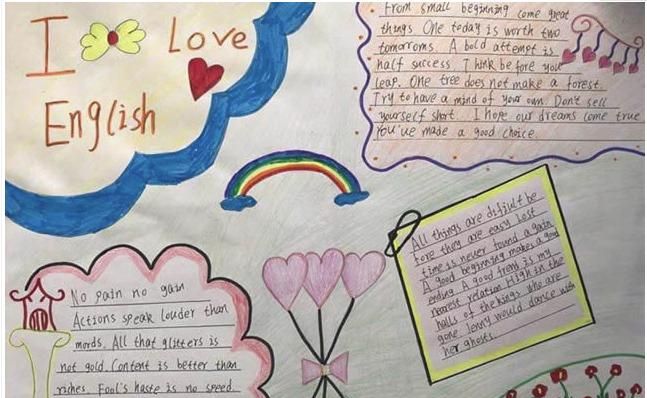 I Love
English
From small beginning come great
things One today is worth two
tomorroms. A bold attempt is
half success Think before you
leap. One tree does not make a forest.
Try to have a mind of your own. Don't sell
yourself short. I hope our dreams come true
You've made a good choice.
All things are difjult be
fore they are easy Lost
time is never found a gain
A good beginning makes a good
ending A good frend is my
nearest relation High in the
halls of the kings who are
gone Jenny would dance with
her ghosts.
No pain no gain
Actions speak louder than
mords. All that glitters is
not gold. Content is better than
riches. Fool's haste is no speed.